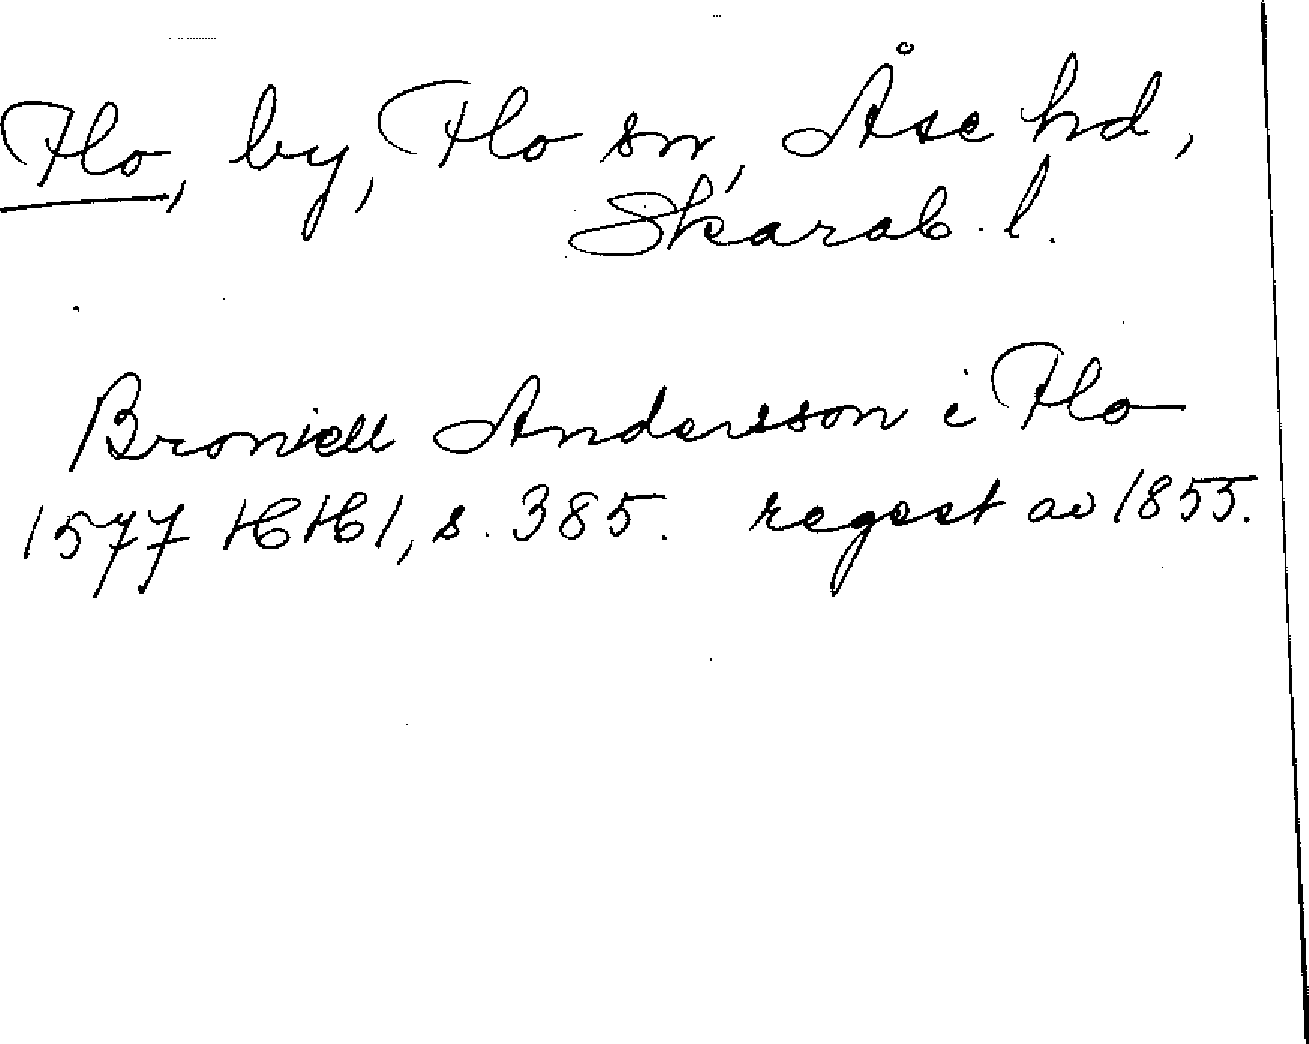 Flo, by, Flo sn, Åse hd,
Skarab. l.
Broniell Andersson i Flo
1577 HH 1, s. 385. regest av 1855.